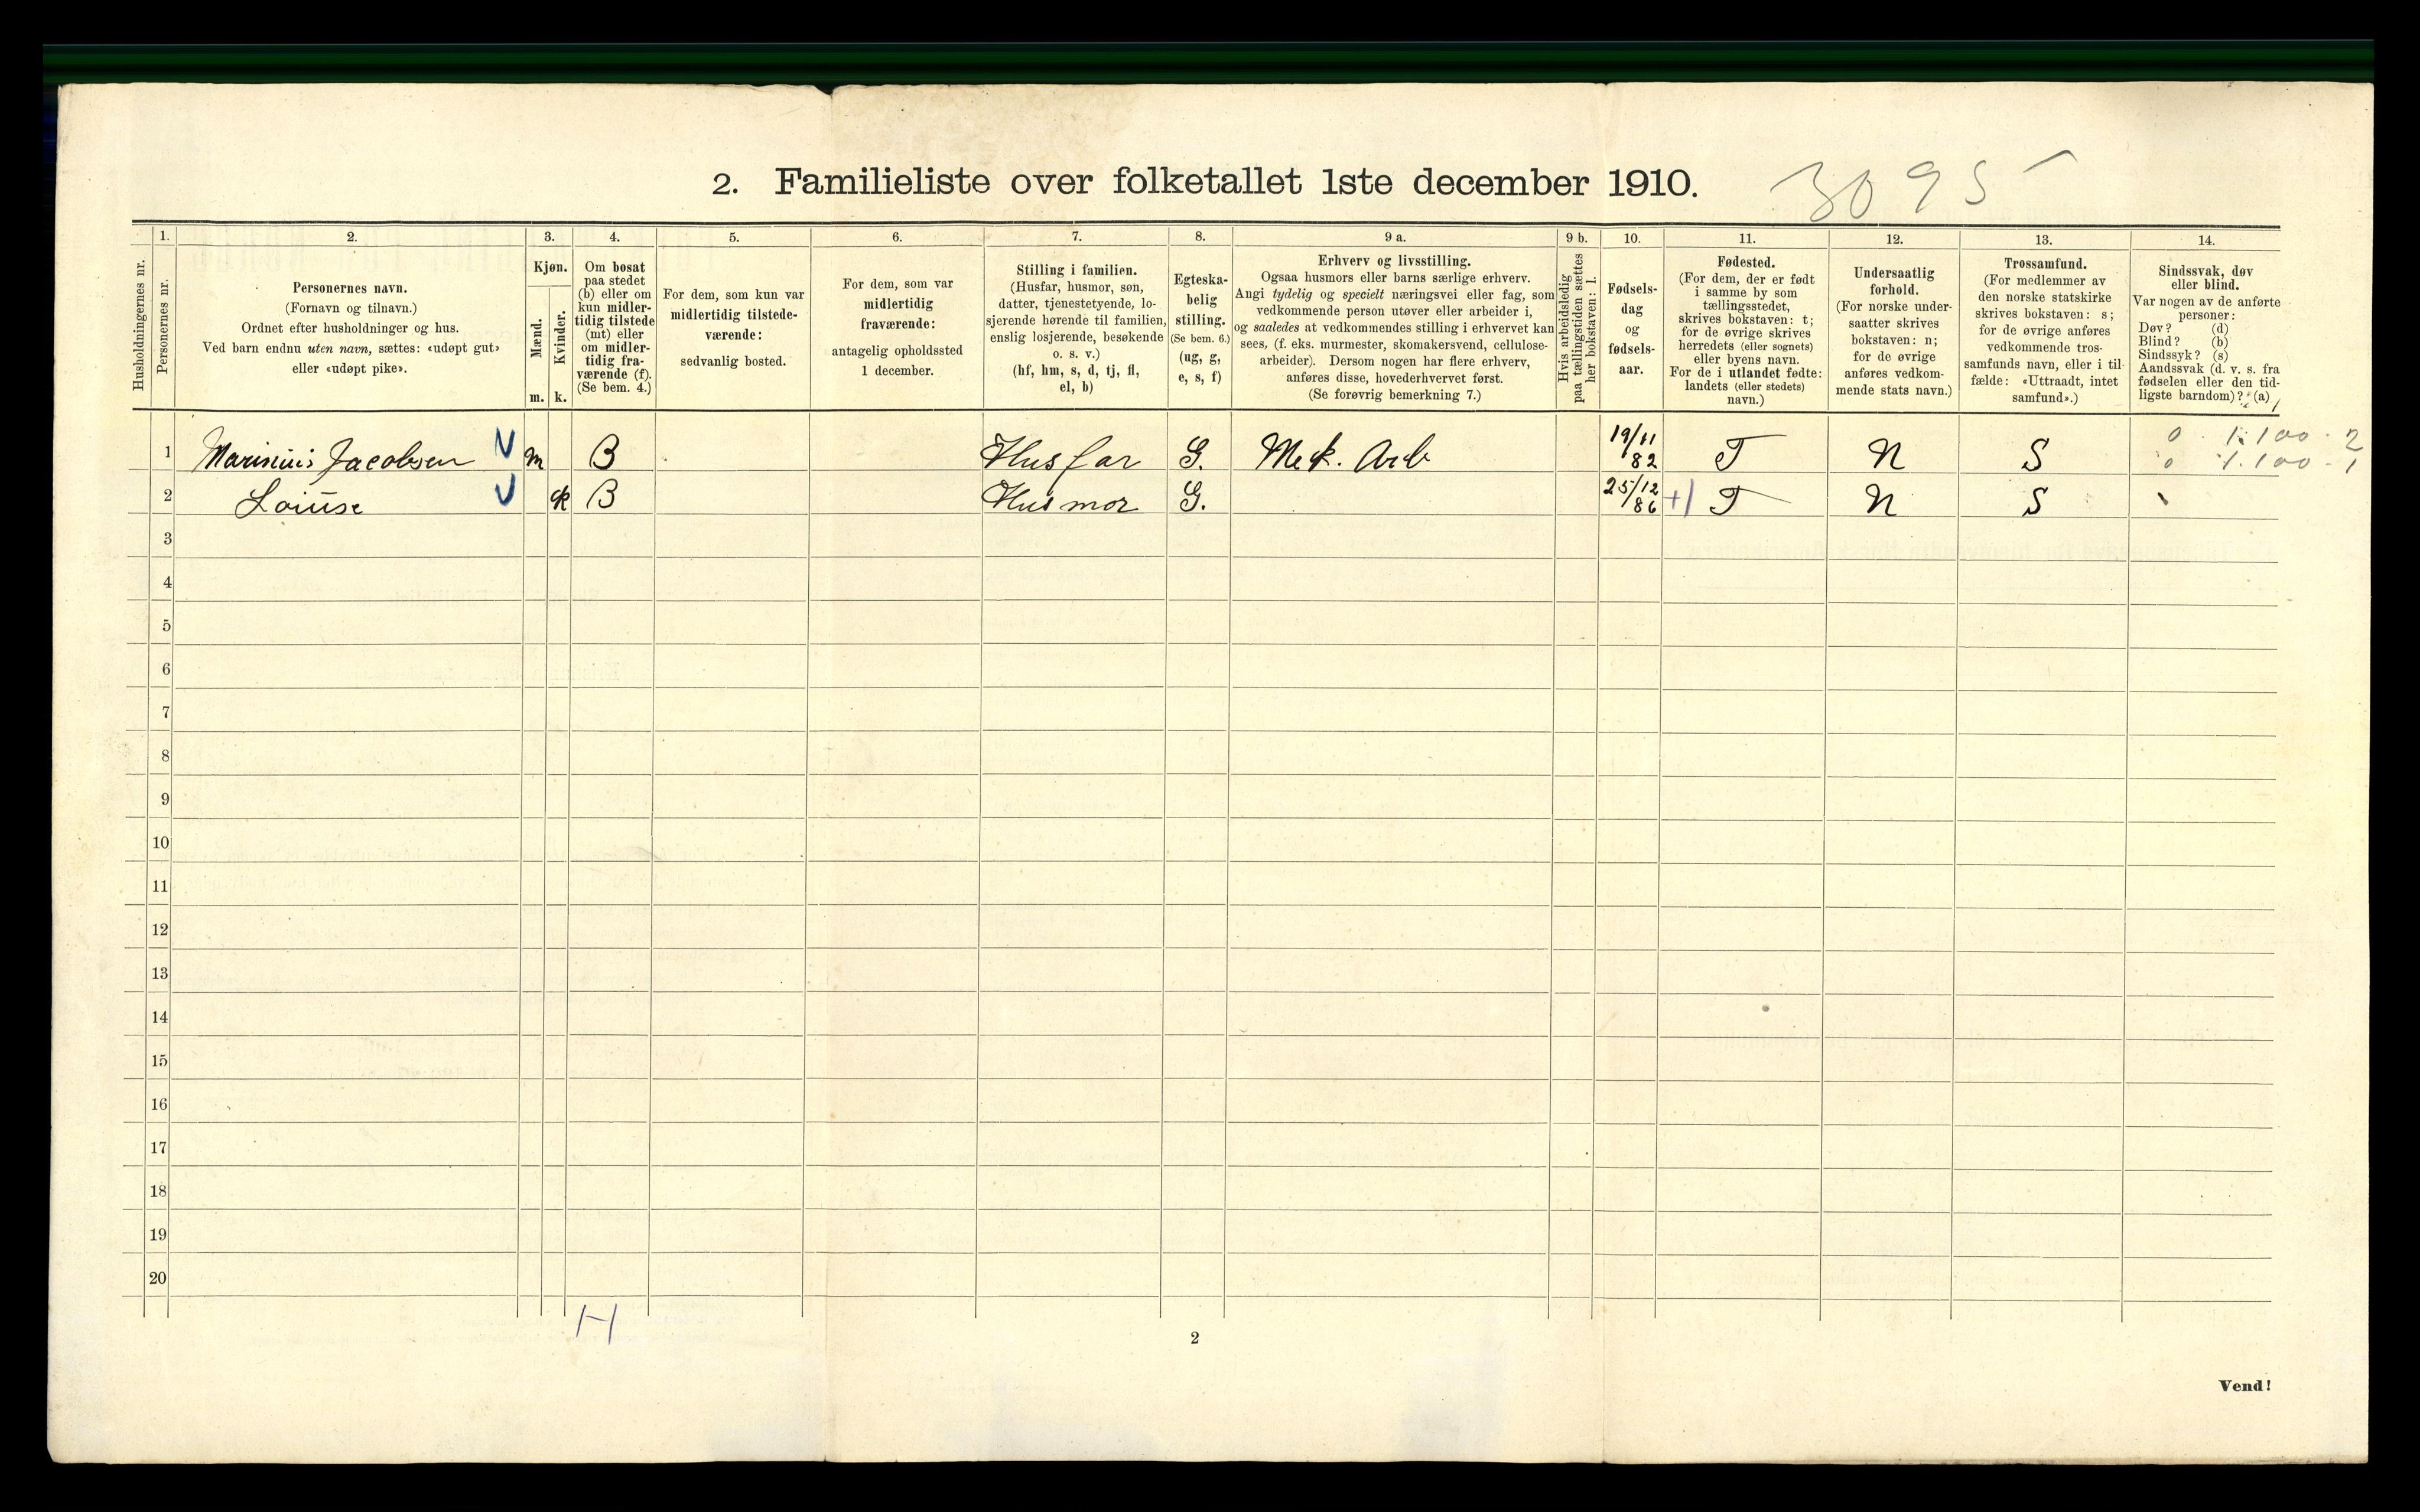 2. Familieliste over folketallet 1ste december 1910.
3095
Husholdningernes nr.
1.
Personernes nr.
2.
Personernes navn.
(Fornavn og tilnavn.)
Ordnet efter husholdninger og hus.
Ved barn endnu uten navn, sættes: «udøpt gut»
eller «udøpt pike».
3.
Kjøn.
Mænd.
m.
Kvinder.
k.
4.
Om bosat
paa stedet
(b) eller om
kun midler-
tidig tilstede
(mt) eller
om midler-
tidig fra-
værende (f).
(Se bem. 4.)
5.
For dem, som kun var
midlertidig tilstede-
værende:
sedvanlig bosted.
6.
For dem, som var
midlertidig
fraværende:
antagelig opholdssted
1 december.
7.
Stilling i familien.
(Husfar, husmor, søn,
datter, tjenestetyende, lo-
sjerende hørende til familien,
enslig losjerende, besøkende
o. s. v.)
(hf, hm, s, d, tj, fl,
el, b)
8.
Egteska-
belig
stilling.
(Se bem. 6.)
(ug, g,
e, s, f)
9 a.
Erhverv og livsstilling.
Ogsaa husmors eller barns særlige erhverv.
Angi tydelig og specielt næringsvei eller fag, som
vedkommende person utøver eller arbeider i,
og saaledes at vedkommendes stilling i erhvervet kan
sees, (f. eks. murmester, skomakersvend, cellulose-
arbeider). Dersom nogen har flere erhverv,
anføres disse, hovederhvervet først.
(Se forøvrig bemerkning 7.)
9 b.
Hvis arbeidsledig
paa tællingstiden sættes
her bokstaven: l.
10.
Fødsels-
dag
og
fødsels-
aar.
11.
Fødested.
(For dem, der er født
i samme by som
tællingsstedet,
skrives bokstaven: t;
for de øvrige skrives
herredets (eller sognets)
eller byens navn.
For de i utlandet fødte:
landets (eller stedets)
navn.)
12.
Undersaatlig
forhold.
(For norske under-
saatter skrives
bokstaven: n;
for de øvrige
anføres vedkom-
mende stats navn.)
13.
Trossamfund.
(For medlemmer av
den norske statskirke
skrives bokstaven: s;
for de øvrige anføres
vedkommende tros-
samfunds navn, eller i til-
fælde: «Uttraadt, intet
samfund».)
14.
Sindssvak, døv
eller blind.
Var nogen av de anførte
personer:
Døv? (d)
Blind? (b)
Sindssyk? (s)
Aandssvak (d. v. s. fra
fødselen eller den tid-
ligste barndom)? (a)
1 Marinius Jacobsen m B Husfar G. Mek. Arb 19/11 82 T N S 0 1.100.2
0 1.100-1
2 Louise k B Husmor G. 25/12 86 +1 T N S
3
4
5
6
7
8
9
10
11
12
13
14
15
16
17
18
19
20
H
2
Vend!